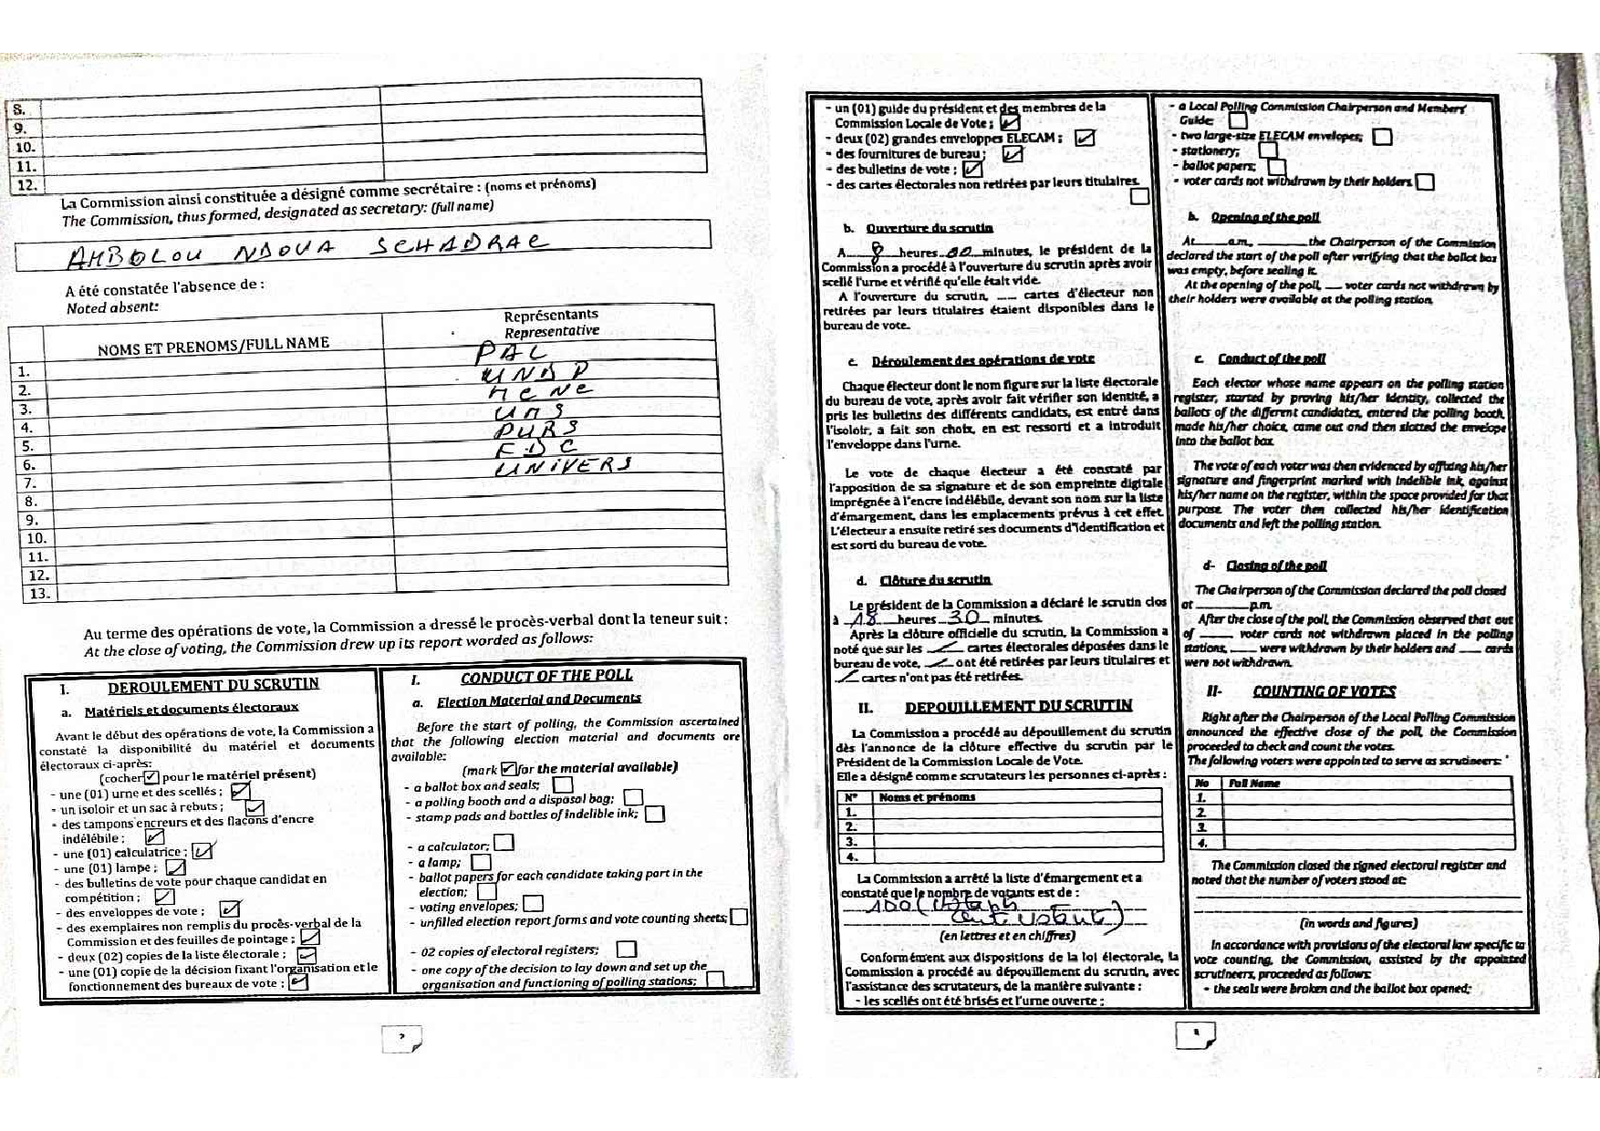 8.
9.
10.
11.
12.
La Commission ainsi constituée a désigné comme secrétaire : (noms et prénoms)
The Commission, thus formed, designated as secretary: (full name)
AHBOLOU NDOUA SCHADRAC
A été constatée l'absence de :
Noted absent:
NOMS ET PRENOMS/FULL NAME
Représentants
Representative
PAL
1. UNDP
2. MCNC
3. UMS
4. PURS
5. FDC
6. UNIVERS
7.
8.
9.
10.
11.
12.
13.
Au terme des opérations de vote, la Commission a dressé le procès-verbal dont la teneur suit :
At the close of voting, the Commission drew up its report worded as follows:
I. DEROULEMENT DU SCRUTIN
a. Matériels et documents électoraux
Avant le début des opérations de vote, la Commission a
constaté la disponibilité du matériel et documents
électoraux ci-après:
(cocher ☑ pour le matériel présent)
- une (01) urne et des scellés ; ☑
- un isoloir et un sac à rebuts ; ☑
- des tampons encreurs et des flacons d'encre
indélébile ; ☑
- une (01) calculatrice ; ☑
- une (01) lampe ; ☑
- des bulletins de vote pour chaque candidat en
compétition ; ☑
- des enveloppes de vote ; ☑
- des exemplaires non remplis du procès-verbal de la
Commission et des feuilles de pointage ; ☑
- deux (02) copies de la liste électorale ; ☑
- une (01) copie de la décision fixant l'organisation et le
fonctionnement des bureaux de vote ; ☑
I. CONDUCT OF THE POLL
a. Election Material and Documents
Before the start of polling, the Commission ascertained
that the following election material and documents are
available:
(mark ☑ for the material available)
- a ballot box and seals; ☐
- a polling booth and a disposal bag; ☐
- stamp pads and bottles of indelible ink; ☐
- a calculator; ☐
- a lamp; ☐
- ballot papers for each candidate taking part in the
election; ☐
- voting envelopes; ☐
- unfilled election report forms and vote counting sheets; ☐
- 02 copies of electoral registers; ☐
- one copy of the decision to lay down and set up the
organisation and functioning of polling stations; ☐
- un (01) guide du président et des membres de la
Commission Locale de Vote ; ☑
- deux (02) grandes enveloppes ELECAM ; ☑
- des fournitures de bureau ; ☑
- des bulletins de vote ; ☑
- des cartes électorales non retirées par leurs titulaires. ☐
b. Ouverture du scrutin
A 8 heures 00 minutes, le président de la
Commission a procédé à l'ouverture du scrutin après avoir
scellé l'urne et vérifié qu'elle était vide.
A l'ouverture du scrutin, ___ cartes d'électeur non
retirées par leurs titulaires étaient disponibles dans le
bureau de vote.
c. Déroulement des opérations de vote
Chaque électeur dont le nom figure sur la liste électorale
du bureau de vote, après avoir fait vérifier son identité, a
pris les bulletins des différents candidats, est entré dans
l'isoloir, a fait son choix, en est ressorti et a introduit
l'enveloppe dans l'urne.
Le vote de chaque électeur a été constaté par
l'apposition de sa signature et de son empreinte digitale
imprégnée à l'encre indélébile, devant son nom sur la liste
d'émargement, dans les emplacements prévus à cet effet.
L'électeur a ensuite retiré ses documents d'identification et
est sorti du bureau de vote.
d. Clôture du scrutin
Le président de la Commission a déclaré le scrutin clos
à 18 heures 30 minutes.
Après la clôture officielle du scrutin, la Commission a
noté que sur les ___ cartes électorales déposées dans le
bureau de vote, ___ ont été retirées par leurs titulaires et
___ cartes n'ont pas été retirées.
II. DEPOUILLEMENT DU SCRUTIN
La Commission a procédé au dépouillement du scrutin
dès l'annonce de la clôture effective du scrutin par le
Président de la Commission Locale de Vote.
Elle a désigné comme scrutateurs les personnes ci-après :
N° Noms et prénoms
1.
2.
3.
4.
La Commission a arrêté la liste d'émargement et a
constaté que le nombre de votants est de :
(en lettres et en chiffres)
Conformément aux dispositions de la loi électorale, la
Commission a procédé au dépouillement du scrutin, avec
l'assistance des scrutateurs, de la manière suivante :
- les scellés ont été brisés et l'urne ouverte ;
- a Local Polling Commission Chairperson and Members'
Guide; ☐
- two large-size ELECAM envelopes; ☐
- stationery; ☐
- ballot papers; ☐
- voter cards not withdrawn by their holders ☐
b. Opening of the poll
At ___ a.m, ___ the Chairperson of the Commission
declared the start of the poll after verifying that the ballot box
was empty, before sealing it.
At the opening of the poll, ___ voter cards not withdrawn by
their holders were available at the polling station.
c. Conduct of the poll
Each elector whose name appears on the polling station
register, started by proving his/her identity, collected the
ballots of the different candidates, entered the polling booth,
made his/her choice, came out and then slotted the envelope
into the ballot box.
The vote of each voter was then evidenced by affixing his/her
signature and fingerprint marked with indelible ink, against
his/her name on the register, within the space provided for that
purpose. The voter then collected his/her identification
documents and left the polling station.
d- Closing of the poll
The Chairperson of the Commission declared the poll closed
at ___ p.m.
After the close of the poll, the Commission observed that out
of ___ voter cards not withdrawn placed in the polling
stations, ___ were withdrawn by their holders and ___ cards
were not withdrawn.
II- COUNTING OF VOTES
Right after the Chairperson of the Local Polling Commission
announced the effective close of the poll, the Commission
proceeded to check and count the votes.
The following voters were appointed to serve as scrutineers:
No Full Name
1.
2.
3.
4.
The Commission closed the signed electoral register and
noted that the number of voters stood at:
(in words and figures)
In accordance with provisions of the electoral law specific to
vote counting, the Commission, assisted by the appointed
scrutineers, proceeded as follows:
- the seals were broken and the ballot box opened;